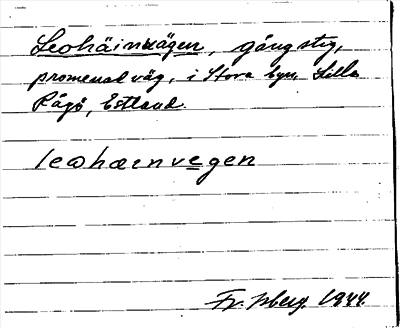 Leohäinvägen, gångstig,
promenadväg, i Stora byn Lilla
Rågö, Estland.
leohænvegen
Fr. Isberg. 1944.